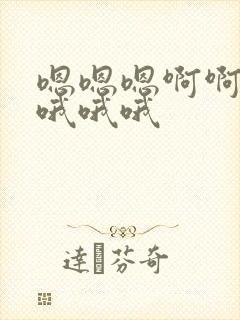 嗯嗯嗯啊啊
哦哦哦
達芬奇